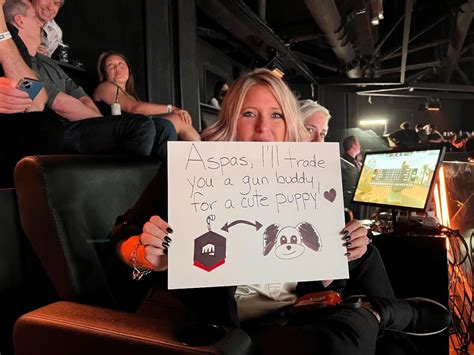 Aspas, I'll trade
you a gun buddy
for a cute puppy!